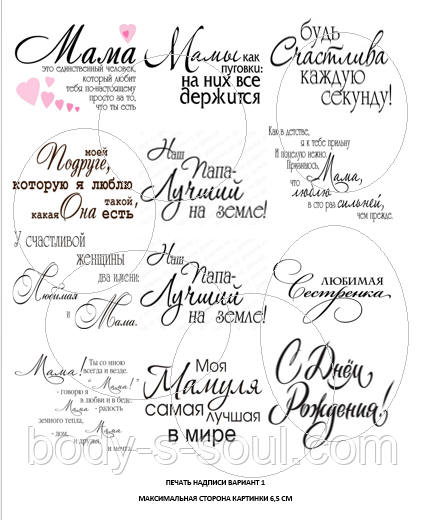 Мама
это единственный человек,
который любит
тебя по-настоящему
просто за то,
что ты есть
Мамы как
пуговки:
на них все
держится
будь
Счастлива
каждую
секунду!
моей
Подруге,
которую я люблю
такой,
какая Она есть
Наш
Папа-
Лучший
на земле!
Как в детстве,
я к тебе прильну
И поцелую нежно.
Признаюсь,
что Мама,
люблю
в сто раз сильней,
чем прежде.
У счастливой
женщины
два имени:
Любимая
и
Мама.
Наш
Папа-
Лучший
на земле!
любимая
Сестренка
Мама! Ты со мною
всегда и везде.
"Мама!"
- говорю я
в любви и в беде.
Мама - радость
земного тепла,
Мама - дом,
и друзья,
и мечта...
Моя
Мамуля
самая
лучшая
в мире
С Днём
Рождения!
body-s-soul.com.ua
ПЕЧАТЬ НАДПИСИ ВАРИАНТ 1
МАКСИМАЛЬНАЯ СТОРОНА КАРТИНКИ 6,5 СМ